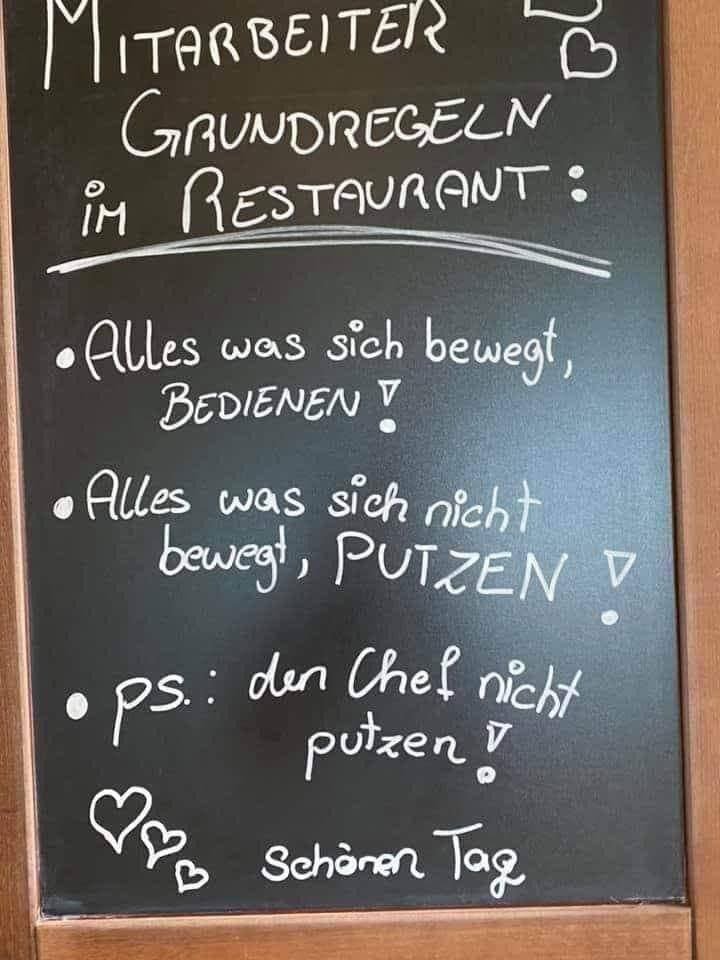 MITARBEITER
GRUNDREGELN
iM RESTAURANT:
• Alles was sich bewegt,
BEDIENEN!
• Alles was sich nicht
bewegt, PUTZEN!
• ps.: den Chef nicht
putzen!
schönen Tag